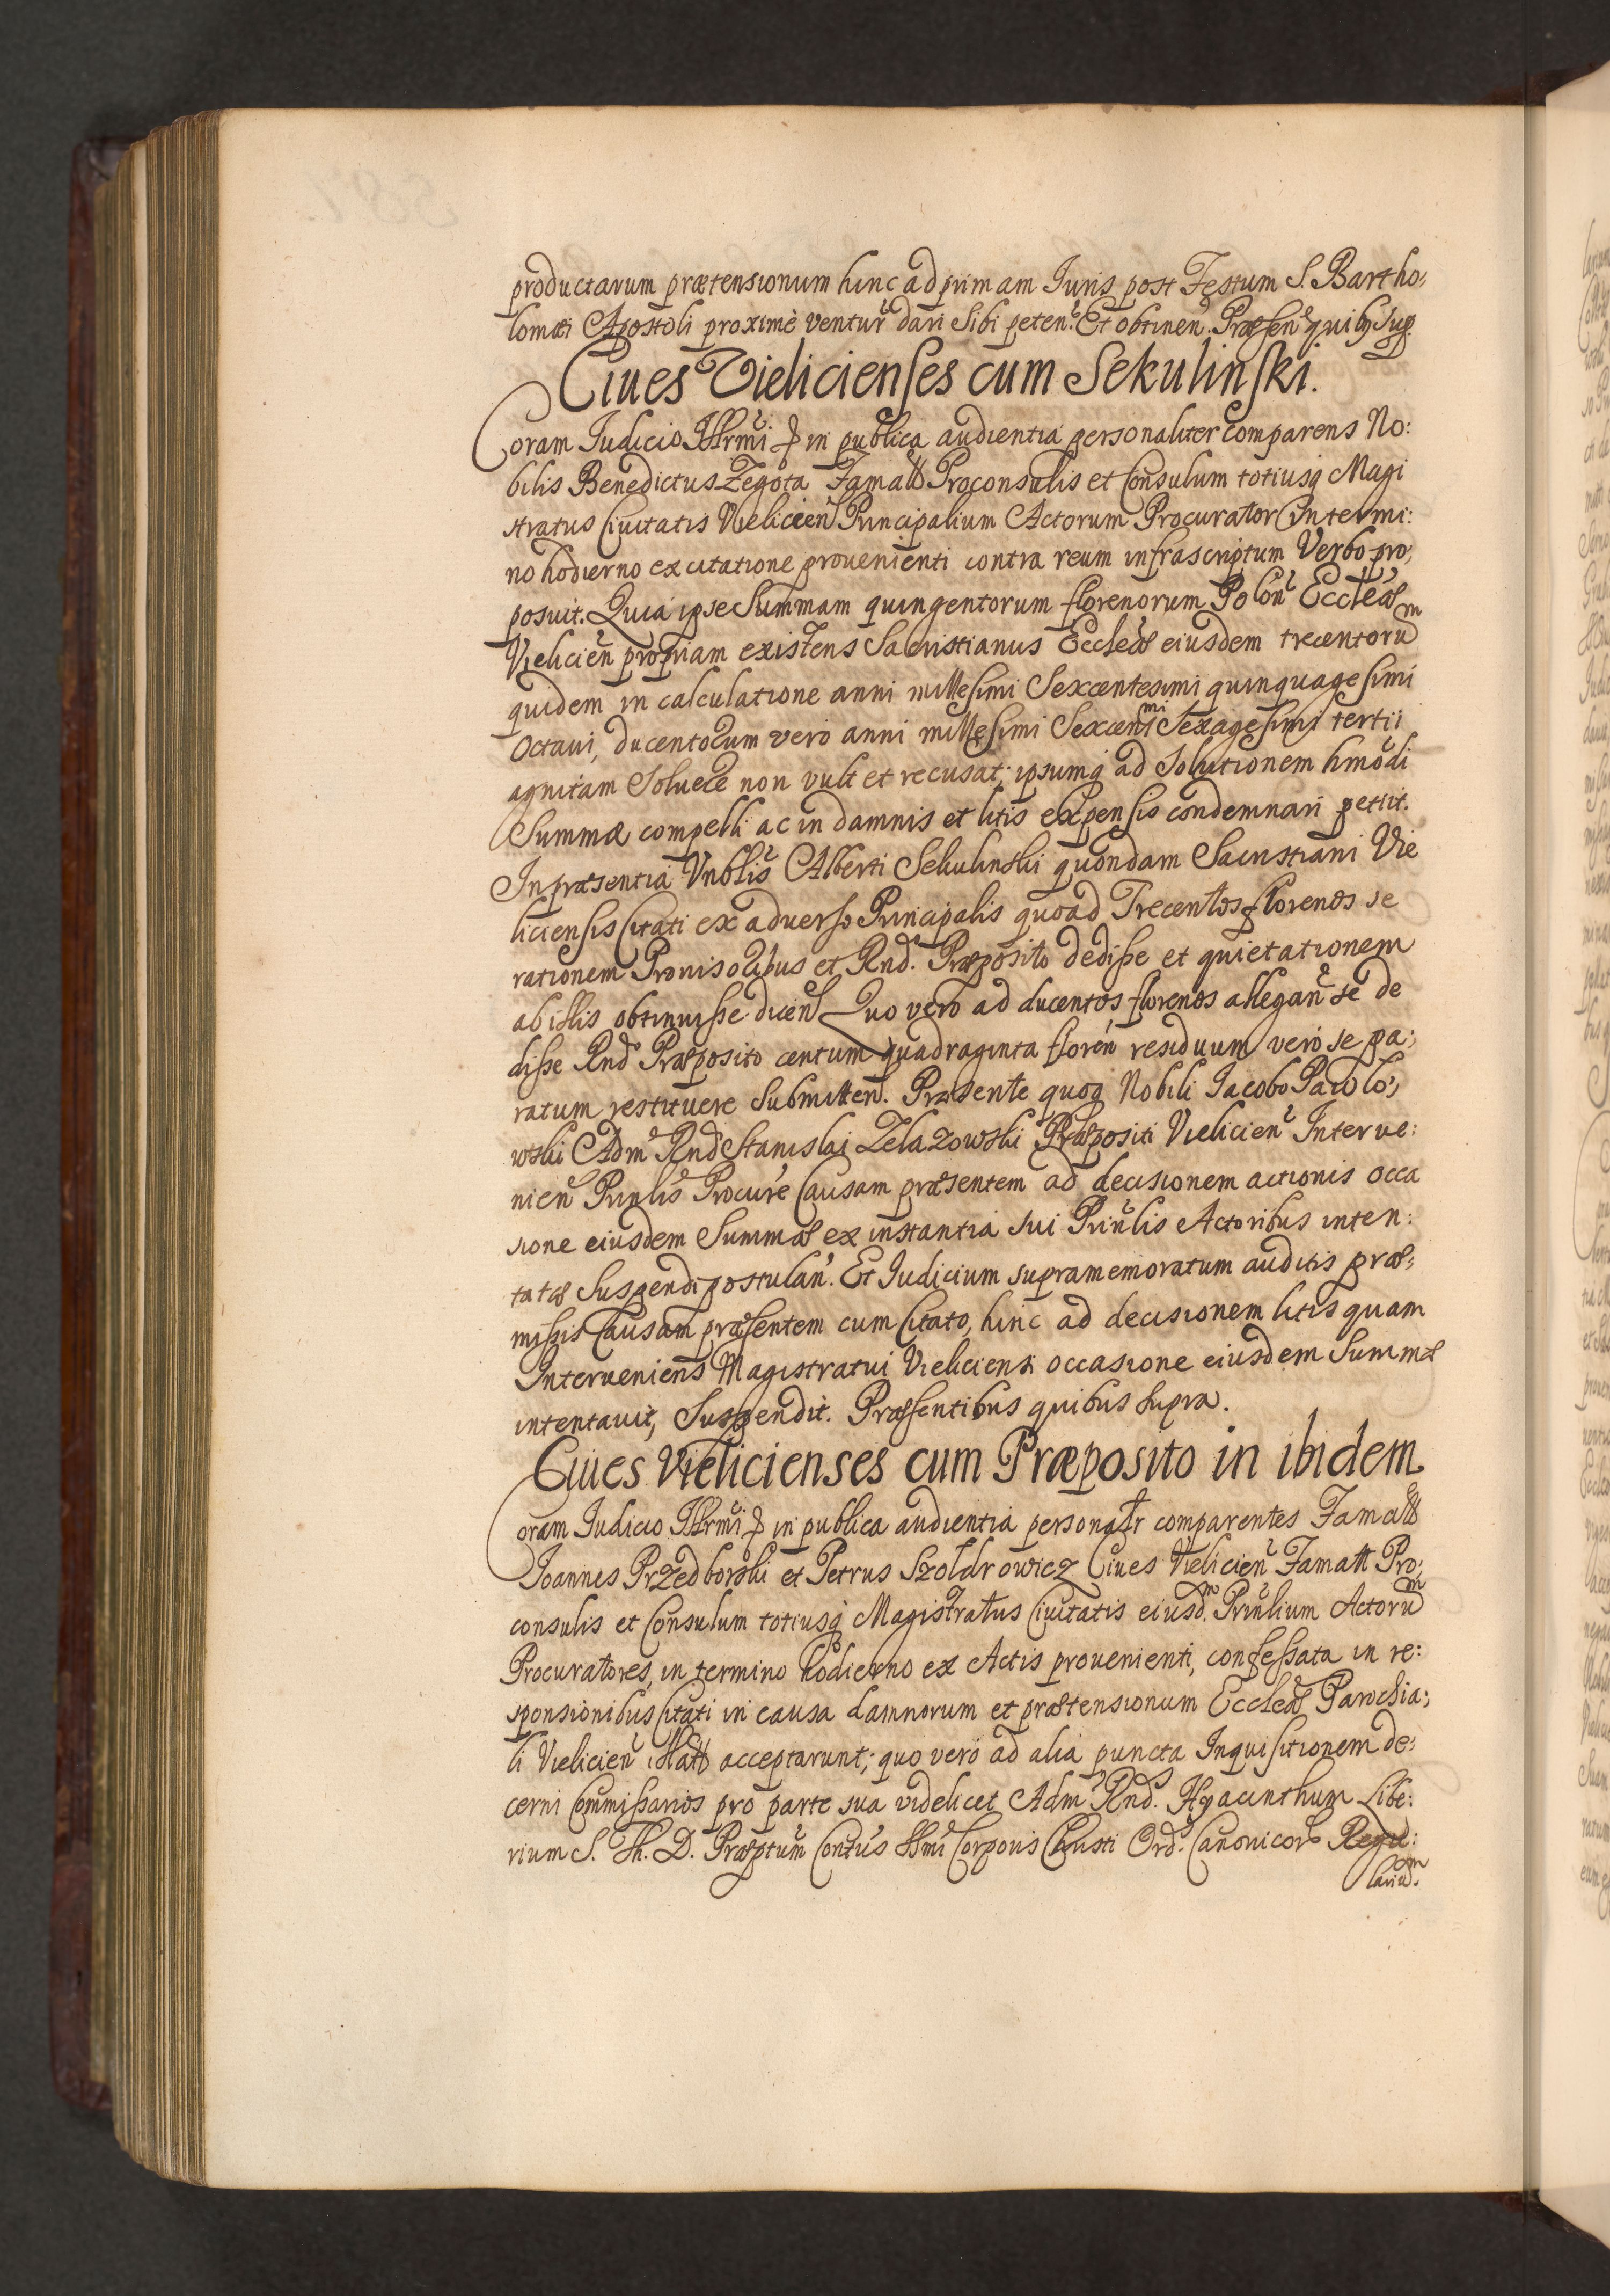 productarum prætensionum hinc ad primam Iuris post Festum S. Bartho:
lomæi Apostoli proximè ventur̃ dari sibi peten̄. Et obtinen̄. Præsen̄ quibȝ sup.
Ciues Vielicienses cum Sekulinski.
Coram Iudicio Illrmi & in publica audientia personaliter comparens No:
bilis Benedictus Zegota Famatt Proconsulis et Consulum totiusq Magi
stratus Ciuitatis Vielicien̄ Principalium Actorum Procurator in termi:
no hodierno ex citatione prouenienti contra reum infrascriptum Verbo pro:
posuit. Quia ipse Summam quingentorum florenorum Polon̄ Eccleæ
Vielicien̄ propriam existens Sacristianus Eccleæ eiusdem trecentorum
quidem in calculatione anni millesimi Sexcentesimi quinquagesimi
Octaui, ducentorum vero anni millesimi Sexcenmi Sexagesimi tertii
agnitam Soluere non vult et recusat; ipsumq ad Solutionem hmodi
Summæ compelli ac in damnis et litis expensis condemnari petiit.
In præsentia Vnblis Alberti Sekulinski quondam Sacristiani Vie
liciensis Citati ex aduerso Principalis quoad Trecentos florenos se
rationem Prouisoribus et Rnd. Præposito dedisse et quietationem
ab illis obtinuisse dicen̄ Quo vero ad ducentos florenos allegan̄ se de
disse Rnd Præposito centum quadraginta floren̄ residuum vero se pa:
ratum restituere Submitten̄. Præsente quoq Nobili Iacobo Pawlo:
wski Adm Rnd Stanislai Zelazowski Præpositi Vielicien̄ Interue:
nien̄ Prinlis Procure Causam præsentem ad decisionem actionis occa
sione eiusdem Summæ ex instantia sui Prinlis Actoribus inten:
tatæ Suspendi postulan̄. Et Iudicium supramemoratum auditis præ:
missis Causam præsentem cum Citato, hinc ad decisionem litis quam
Interueniens Magistratui Vieliciensi occasione eiusdem Summæ
intentauit, Suspendit. Præsentibus quibus supra.
Ciues Vielicienses cum Præposito in ibidem
Coram Iudicio Illrmi & in publica audientia personatr comparentes Famatt
Ioannes Przedborski et Petrus Szoldrowicz Ciues Vielicien̄ Famatt Pro:
consulis et Consulum totiusq Magistratus Ciuitatis eiusdm. Prinlium Actorum
Procuratores, in termino hodierno ex Actis prouenienti, confessata in re:
sponsionibus Citati in causa damnorum et prætensionum Eccleæ Parochia:
li Vielicien̄ illatt acceptarunt; quo vero ad alia puncta Inquisitionem de:
cerni Commissarios pro parte sua videlicet Adm Rnd. Hyacinthum Libe:
rium S. Th. D. Præptum Contus Ssmi Corporis Christi Ord. Canonicor Regu:
larium.